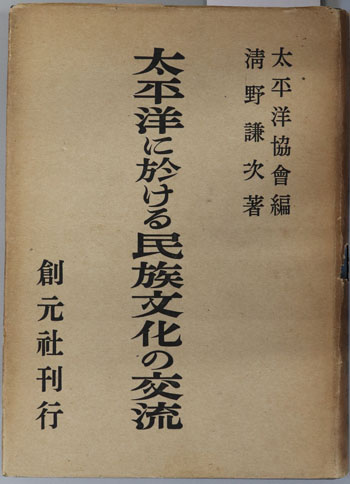 太平洋協會編
淸野謙次著
太平洋に於ける民族文化の交流
創元社刊行